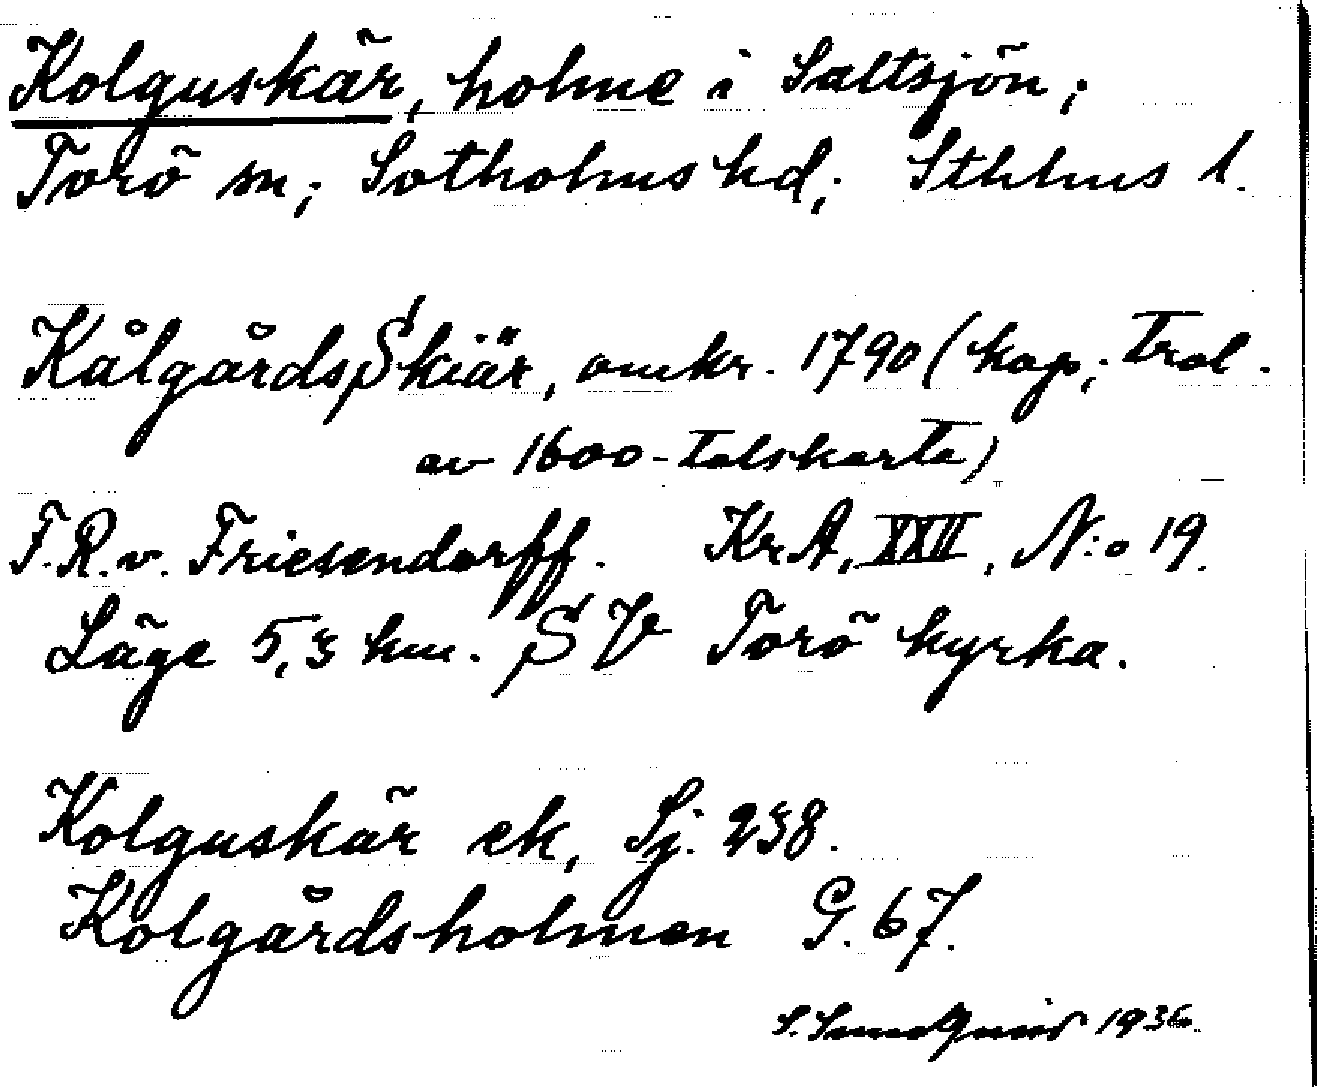 Kolguskär, holme i Saltsjön;
Torö sn; Sotholms hd; Sthlms l.
KålgårdsSkiär, omkr. 1790 (kop; trol.
av 1600-talskarta)
F.R.v. Friesendorff. KrA, XXII, N:o 19.
Läge 5,3 km. SV Torö kyrka.
Kolguskär ek, Sj. 238.
Kolgårdsholmen G. 67.
S. Sundquist 1936.